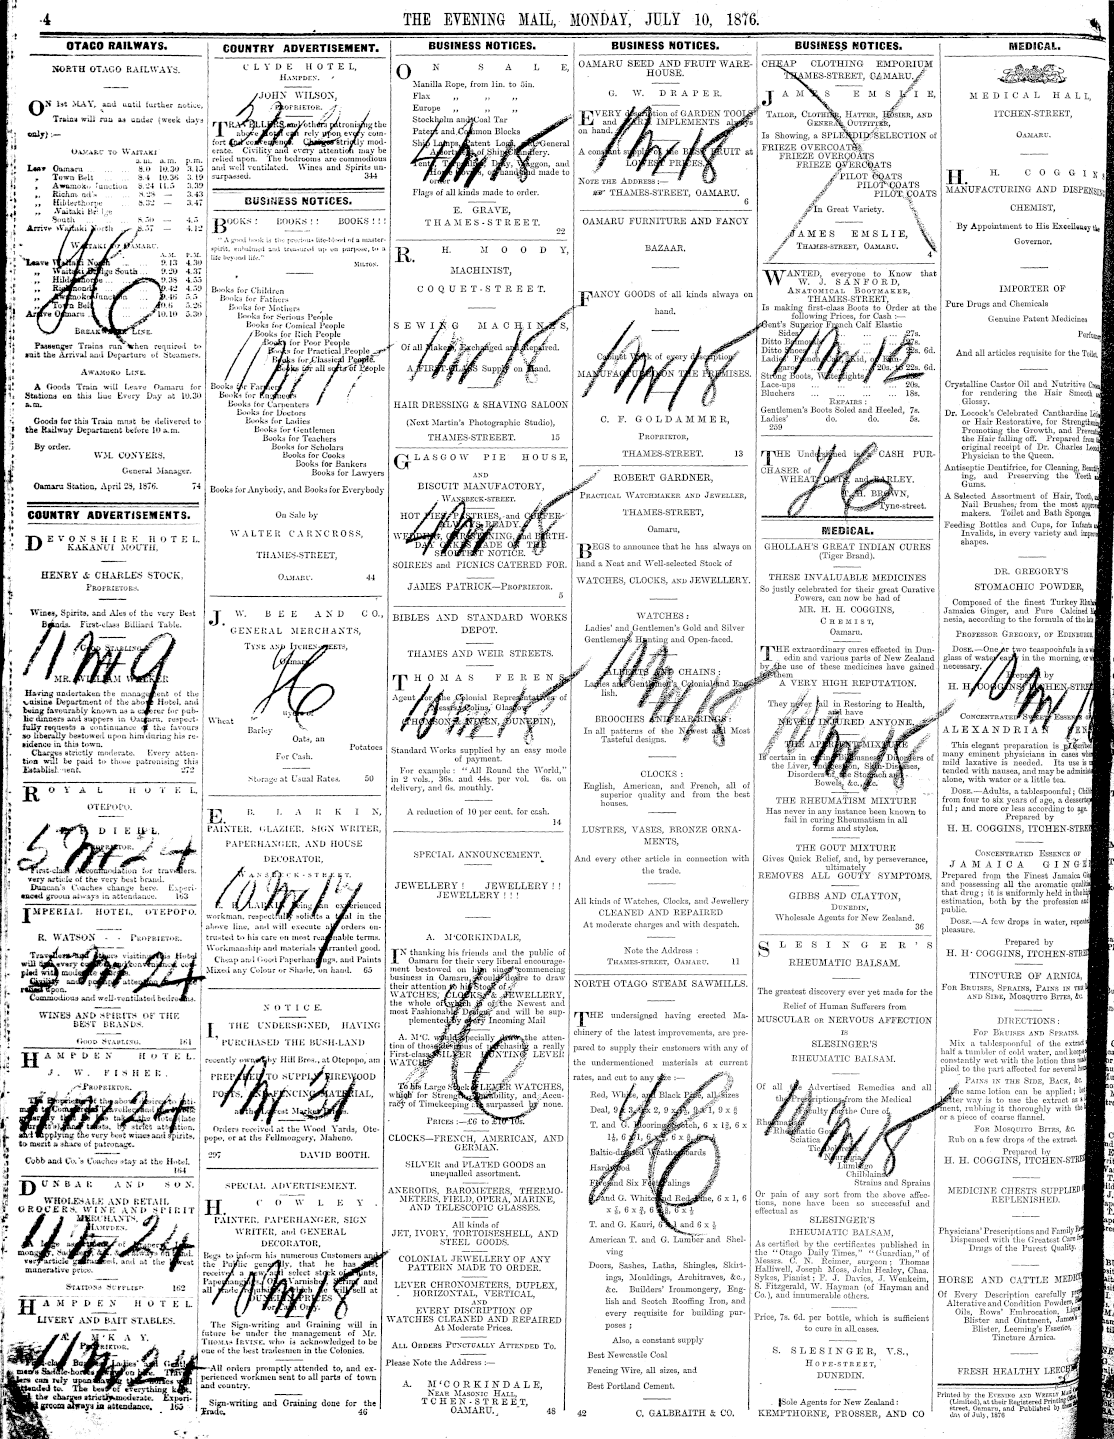 4
THE EVENING MAIL, MONDAY, JULY 10, 1876.
OTAGO RAILWAYS.
NORTH OTAGO RAILWAYS.
ON 1st MAY, and until further notice,
Trains will run as under (week days
only):—
OAMARU TO WAITAKI
a.m. a.m. p.m.
Leave Oamaru 8.0 10.30 3.15
„ Town Belt 8.4 10.36 3.19
„ Awamoko Junction 8.24 11.5 3.39
„ Richmond's 8.28 — 3.43
„ Hilderthorpe 8.32 — 3.47
„ Waitaki Bridge
South 8.50 — 4.5
Arrive Waitaki North 8.57 — 4.12
WAITAKI TO OAMARU.
A.M. P.M.
Leave Waitaki North 9.13 4.30
„ Waitaki Bridge South 9.20 4.37
9.38 4.55
9.42 4.59
„ Awamoko Junction 9.46 5.5
„ Town Belt 5.26
Arrive Oamaru 10.10 5.30
BREAKWATER LINE.
Passenger Trains run when required to
suit the Arrival and Departure of Steamers.
AWAMOKO LINE.
A Goods Train will Leave Oamaru for
Stations on this line Every Day at 10.30
a.m.
Goods for this Train must be delivered to
the Railway Department before 10 a.m.
By order.
WM. CONYERS,
General Manager.
Oamaru Station, April 28, 1876. 74
COUNTRY ADVERTISEMENTS.
DEVONSHIRE HOTEL,
KAKANUI MOUTH.
HENRY & CHARLES STOCK,
PROPRIETORS.
Wines, Spirits, and Ales of the very Best
Brands. First-class Billiard Table.
GOOD STABLING.
11 m 9
MR. WILLIAM WALKER
Having undertaken the management of the
Cuisine Department of the above Hotel, and
being favourably known as a caterer for pub-
lic dinners and suppers in Oamaru, respect-
fully requests a continuance of the favours
so liberally bestowed upon him during his re-
sidence in this town.
Charges strictly moderate. Every atten-
tion will be paid to those patronising this
Establishment. 272
ROYAL HOTEL,
OTEPOPO.
DIEHL,
PROPRIETOR.
5 m 24
First-class Accommodation for travellers.
very article of the very best brand.
Duncan's Coaches change here. Experi-
enced groom always in attendance. 163
IMPERIAL HOTEL, OTEPOPO.
R. WATSON - - - PROPRIETOR.
5 m 24
Commodious and well-ventilated bedrooms.
WINES AND SPIRITS OF THE
BEST BRANDS.
GOOD STABLING. 161
HAMPDEN HOTEL.
J. W. FISHER,
PROPRIETOR.
11 m 24
supplying the very best wines and spirits,
to merit a share of patronage.
Cobb and Co.'s Coaches stay at the Hotel.
164
DUNBAR AND SON,
WHOLESALE AND RETAIL
GROCERS, WINE AND SPIRIT
MERCHANTS,
HAMPDEN.
11 m 24
munerative price.
STATIONS SUPPLIED 162
HAMPDEN HOTEL.
LIVERY AND BAIT STABLES.
M'KAY,
PROPRIETOR.
11 m 24
the charges strictly moderate. Experi-
groom always in attendance. 165
COUNTRY ADVERTISEMENT.
CLYDE HOTEL,
HAMPDEN.
JOHN WILSON,
PROPRIETOR.
TRAVELLERS and others patronising the
above Hotel can rely upon every com-
fort and convenience. Charges strictly mod-
erate. Civility and every attention may be
relied upon. The bedrooms are commodious
and well ventilated. Wines and Spirits un-
surpassed. 344
BUSINESS NOTICES.
BOOKS! BOOKS!! BOOKS!!!
"A good book is the precious life-blood of a master-
spirit, embalmed and treasured up on purpose, to a
life beyond life."
MILTON.
Books for Children
Books for Fathers
Books for Mothers
Books for Serious People
Books for Comical People
Books for Rich People
Books for Poor People
Books for Practical People
Books for Classical People
Books for all sorts of People
Books for Farmers
Books for Engineers
Books for Carpenters
Books for Doctors
Books for Ladies
Books for Gentlemen
Books for Teachers
Books for Scholars
Books for Cooks
Books for Bankers
Books for Lawyers
Books for Anybody, and Books for Everybody
On Sale by
WALTER CARNCROSS,
THAMES-STREET,
OAMARU. 44
J. W. BEE AND CO.,
GENERAL MERCHANTS,
TYNE AND ITCHEN-STREETS,
Oamaru.
Buyers of
Wheat
Barley
Oats, an
Potatoes
For Cash.
Storage at Usual Rates. 50
E. B. LARKIN,
PAINTER, GLAZIER, SIGN WRITER,
PAPERHANGER, AND HOUSE
DECORATOR,
WANSBECK-STREET.
10 m 17
E. B. LARKIN, being an experienced
workman, respectfully solicits a trial in the
above line, and will execute all orders en-
trusted to his care on most reasonable terms.
Workmanship and materials warranted good.
Cheap and Good Paperhangings, and Paints
Mixed any Colour or Shade, on hand. 65
NOTICE.
I, THE UNDERSIGNED, HAVING
PURCHASED THE BUSH-LAND
recently owned by Hill Bros., at Otepopo, am
PREPARED TO SUPPLY FIREWOOD
POSTS, AND FENCING MATERIAL,
Orders received at the Wood Yards, Ote-
popo, or at the Fellmongery, Maheno.
297 DAVID BOOTH.
SPECIAL ADVERTISEMENT.
H. COWLEY
PAINTER, PAPERHANGER, SIGN
WRITER, and GENERAL
DECORATOR,
Begs to inform his numerous Customers and
the Public generally, that he has
10 m 18
The Sign-writing and Graining will in
future be under the management of Mr.
THOMAS IRVINE, who is acknowledged to be
one of the best tradesmen in the Colonies.
All orders promptly attended to, and ex-
perienced workmen sent to all parts of town
and country.
Sign-writing and Graining done for the
Trade. 46
BUSINESS NOTICES.
ON SALE,
Manilla Rope, from 1in. to 5in.
Flax „ „ „
Europe „ „ „
Stockholm and Coal Tar
Patent and Common Blocks
Ship Lamps, Patent Logs, and General
4 m 18
Flags of all kinds made to order.
E. GRAVE,
THAMES-STREET.
22
R. H. MOODY,
MACHINIST,
COQUET-STREET.
SEWING MACHINES,
Of all Makers Exchanged and Repaired.
A FIRST-CLASS Supply on Hand.
HAIR DRESSING & SHAVING SALOON
(Next Martin's Photographic Studio),
THAMES-STREEET. 15
GLASGOW PIE HOUSE,
AND
BISCUIT MANUFACTORY,
WANSBECK-STREET.
HOT PIES, PASTRIES, and COFFEE
ALWAYS READY.
WEDDING, CHRISTENING, and BIRTH-
DAY CAKES MADE ON THE
SHORTEST NOTICE.
SOIREES and PICNICS CATERED FOR.
JAMES PATRICK—PROPRIETOR.
5
BIBLES AND STANDARD WORKS
DEPOT.
THAMES AND WEIR STREETS.
THOMAS FERENS
Agent for the Colonial Representatives of
Messrs Collins, Glasgow
(THOMSON & NIVEN, DUNEDIN),
Standard Works supplied by an easy mode
of payment.
For example: "All Round the World,"
in 2 vols., 36s. and 44s. per vol. 6s. on
delivery, and 6s. monthly.
A reduction of 10 per cent. for cash.
14
SPECIAL ANNOUNCEMENT.
JEWELLERY! JEWELLERY!!
JEWELLERY!!!
A. M'CORKINDALE,
IN thanking his friends and the public of
Oamaru for their very liberal encourage-
ment bestowed on him since commencing
business in Oamaru, would desire to draw
their attention to his Stock of
WATCHES, CLOCKS & JEWELLERY,
the whole of which is of the Newest and
most Fashionable Design, and will be sup-
plemented by every Incoming Mail
A. M'C. would specially draw the atten-
tion of those desirous of purchasing a really
First-class SILVER HUNTING LEVER
WATCH
To his Large Stock of LEVER WATCHES,
which for Strength, Durability, and Accu-
racy of Timekeeping is surpassed by none.
PRICES :—£6 to £10 10s.
CLOCKS—FRENCH, AMERICAN, AND
GERMAN.
SILVER and PLATED GOODS an
unequalled assortment.
ANEROIDS, BAROMETERS, THERMO-
METERS, FIELD, OPERA, MARINE,
AND TELESCOPIC GLASSES.
All kinds of
JET, IVORY, TORTOISESHELL, AND
STEEL GOODS.
COLONIAL JEWELLERY OF ANY
PATTERN MADE TO ORDER.
LEVER CHRONOMETERS, DUPLEX,
HORIZONTAL, VERTICAL,
AND
EVERY DISCRIPTION OF
WATCHES CLEANED AND REPAIRED
At Moderate Prices.
ALL ORDERS PUNCTUALLY ATTENDED TO.
Please Note the Address :—
A. M'CORKINDALE,
NEAR MASONIC HALL,
TCHEN-STREET,
OAMARU. 48
BUSINESS NOTICES.
OAMARU SEED AND FRUIT WARE-
HOUSE.
G. W. DRAPER.
EVERY description of GARDEN TOOLS
and FARM IMPLEMENTS always
on hand.
A constant supply of the BEST FRUIT at
LOWEST PRICES.
NOTE THE ADDRESS :—
THAMES-STREET, OAMARU.
6
OAMARU FURNITURE AND FANCY
BAZAAR.
FANCY GOODS of all kinds always on
hand.
Cabinet Work of every description
MANUFACTURED ON THE PREMISES.
C. F. GOLDAMMER,
PROPRIETOR,
THAMES-STREET. 13
ROBERT GARDNER,
PRACTICAL WATCHMAKER AND JEWELLER,
THAMES-STREET,
Oamaru,
BEGS to announce that he has always on
hand a Neat and Well-selected Stock of
WATCHES, CLOCKS, AND JEWELLERY.
WATCHES :
Ladies' and Gentlemen's Gold and Silver
Gentlemen's Hunting and Open-faced.
ALBERTS AND CHAINS :
Ladies and Gentlemen's Colonial and Eng-
lish.
BROOCHES AND EARRINGS :
In all patterns of the Newest and Most
Tasteful designs.
CLOCKS :
English, American, and French, all of
superior quality and from the best
houses.
LUSTRES, VASES, BRONZE ORNA-
MENTS,
And every other article in connection with
the trade.
All kinds of Watches, Clocks, and Jewellery
CLEANED AND REPAIRED
At moderate charges and with despatch.
Note the Address :
THAMES-STREET, OAMARU. 11
NORTH OTAGO STEAM SAWMILLS.
THE undersigned having erected Ma-
chinery of the latest improvements, are pre-
pared to supply their customers with any of
the undermentioned materials at current
rates, and cut to any size :—
Red, White, and Black Pine, all sizes
T. and G. Flooring
Baltic-dressed Weatherboards
Hardwood
T. and G. Kauri, 6 x 1 and 6 x ½
American T. and G. Lumber and Shel-
ving
Doors, Sashes, Laths, Shingles, Skirt-
ings, Mouldings, Architraves, &c.,
&c. Builders' Ironmongery, Eng-
lish and Scotch Rooffing Iron, and
every requisite for building pur-
poses ;
Also, a constant supply
Best Newcastle Coal
Fencing Wire, all sizes, and
Best Portland Cement.
42 C. GALBRAITH & CO.
BUSINESS NOTICES.
CHEAP CLOTHING EMPORIUM
THAMES-STREET, OAMARU.
JAMES EMSLIE,
TAILOR, CLOTHIER, HATTER, HOSIER, AND
GENERAL OUTFITTER,
Is Showing, a SPLENDID SELECTION of
FRIEZE OVERCOATS
FRIEZE OVERCOATS
FRIEZE OVERCOATS
PILOT COATS
PILOT COATS
PILOT COATS
In Great Variety.
JAMES EMSLIE,
THAMES-STREET, OAMARU.
4
WANTED, everyone to Know that
W. J. SANFORD,
ANATOMICAL BOOTMAKER,
THAMES-STREET,
Is making first-class Boots to Order at the
following Prices, for Cash :—
Gent's Superior French Calf Elastic
Sides 27s.
Ditto Balmorals
Ditto Shoes
1 m 12
Strong Boots, Watertights
Lace-ups 20s.
Bluchers 18s.
REPAIRS :
Gentlemen's Boots Soled and Heeled, 7s.
Ladies' do. do. 5s.
259
THE Undersigned is CASH PUR-
CHASER of
WHEAT, OATS, and BARLEY.
H. BROWN,
Tyne-street.
MEDICAL.
GHOLLAH'S GREAT INDIAN CURES
(Tiger Brand).
THESE INVALUABLE MEDICINES
So justly celebrated for their great Curative
Powers, can now be had of
MR. H. H. COGGINS,
CHEMIST,
Oamaru.
THE extraordinary cures effected in Dun-
edin and various parts of New Zealand
by the use of these medicines have gained
them
A VERY HIGH REPUTATION.
They never fail in Restoring to Health,
and have
NEVER INJURED ANYONE.
THE APERIENT MIXTURE
Is certain in curing Disorders of
the Liver, Skin-Diseases,
Disorders of the Stomach and
Bowels, &c., &c.
THE RHEUMATISM MIXTURE
Has never in any instance been known to
fail in curing Rheumatism in all
forms and styles.
THE GOUT MIXTURE
Gives Quick Relief, and, by perseverance,
ultimately
REMOVES ALL GOUTY SYMPTOMS.
GIBBS AND CLAYTON,
DUNEDIN,
Wholesale Agents for New Zealand.
36
SLESINGER'S
RHEUMATIC BALSAM.
The greatest discovery ever yet made for the
Relief of Human Sufferers from
MUSCULAR or NERVOUS AFFECTION
IS
SLESINGER'S
RHEUMATIC BALSAM.
Of all the Advertised Remedies and all
the Prescriptions from the Medical
Faculty for the Cure of
Rheumatism
Rheumatic Gout
Sciatica
Tic Doloreux
Neuralgia
Lumbago
Chilblains
Strains and Sprains
Or pain of any sort from the above affec-
tions, none have been so successful and
effectual as
SLESINGER'S
RHEUMATIC BALSAM,
As certified by the certificates published in
the "Otago Daily Times," "Guardian," of
Messrs. C. N. Reimer, surgeon; Thomas
Halliwell, Joseph Moss, John Healey, Chas.
Sykes, Pianist; F. J. Davies, J. Wenkeim,
S. Fitzgerald, W. Hayman (of Hayman and
Co.), and innumerable others.
Price, 7s. 6d. per bottle, which is sufficient
to cure in all cases.
S. SLESINGER, V.S.,
HOPE-STREET,
DUNEDIN.
Sole Agents for New Zealand :
KEMPTHORNE, PROSSER, AND CO
MEDICAL.
MEDICAL HALL,
ITCHEN-STREET,
OAMARU.
H. H. COGGINS
MANUFACTURING AND DISPENSING
CHEMIST,
By Appointment to His Excellency the
Governor.
IMPORTER OF
Pure Drugs and Chemicals
Genuine Patent Medicines
And all articles requisite for the Toilet.
Crystalline Castor Oil and Nutritive
for rendering the Hair Smooth
Glossy.
Dr. Locock's Celebrated Cantharidine
or Hair Restorative, for Strengthening
Promoting the Growth, and
the Hair falling off. Prepared from
original receipt of Dr. Charles
Physician to the Queen.
Antiseptic Dentifrice, for Cleaning,
ing, and Preserving the Teeth
Gums.
A Selected Assortment of Hair, Tooth,
Nail Brushes, from the most
makers. Toilet and Bath Sponges
Feeding Bottles and Cups, for Infants
Invalids, in every variety and
shapes.
DR. GREGORY'S
STOMACHIC POWDER,
Composed of the finest Turkey
Jamaica Ginger, and Pure Calcined
nesia, according to the formula of the
PROFESSOR GREGORY, OF EDINBURGH
DOSE.—One or two teaspoonfuls in a
glass of water early in the morning, or
necessary.
Prepared by
H. H. COGGINS, ITCHEN-STREET
CONCENTRATED SWEET ESSENCE
ALEXANDRIAN
This elegant preparation is
many eminent physicians in cases
mild laxative is needed. Its use is
tended with nausea, and may be
alone, with water or a little tea.
DOSE.—Adults, a tablespoonful;
from four to six years of age, a
ful; and more or less according to age.
Prepared by
H. H. COGGINS, ITCHEN-STREET
CONCENTRATED ESSENCE OF
JAMAICA GINGER
Prepared from the Finest Jamaica
and possessing all the aromatic
that drug; it is uniformly held in the
estimation, both by the profession
public.
DOSE.—A few drops in water,
pleasure.
Prepared by
H. H. COGGINS, ITCHEN-STREET
TINCTURE OF ARNICA,
FOR BRUISES, SPRAINS, PAINS IN THE
AND SIDE, MOSQUITO BITES, &c
DIRECTIONS :
FOR BRUISES AND SPRAINS.
Mix a tablespoonful of the extract
half a tumbler of cold water, and keep
constantly wet with the lotion thus
plied to the part affected for several
PAINS IN THE SIDE, BACK, &c.
The same lotion can be applied;
ter way is to use the extract as
ment, rubbing it thoroughly with the
or a piece of coarse flannel.
FOR MOSQUITO BITES, &c.
Rub on a few drops of the extract.
Prepared by
H. H. COGGINS, ITCHEN-STREET
MEDICINE CHESTS SUPPLIED
REPLENISHED.
Physicians' Prescriptions and Family
Dispensed with the Greatest Care
Drugs of the Purest Quality.
HORSE AND CATTLE
Of Every Description carefully
Alterative and Condition Powders,
Oils, Bows' Embrocation,
Blister and Ointment,
Blister, Leeming's Essence,
Tincture Arnica.
FRESH HEALTHY LEECHES
Printed by the EVENING AND WEEKLY MAIL
(Limited), at their Registered Printing
street, Oamaru, and Published by
day of July, 1876